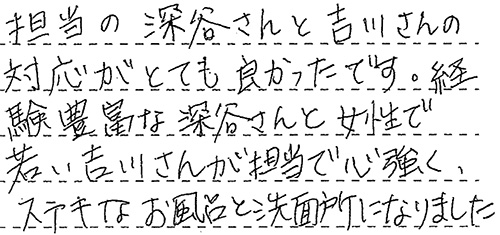 担当の深谷さんと吉川さんの
対応がとても良かったです。経
験豊富な深谷さんと女性で
若い吉川さんが担当で心強く、
ステキなお風呂と洗面所になりました